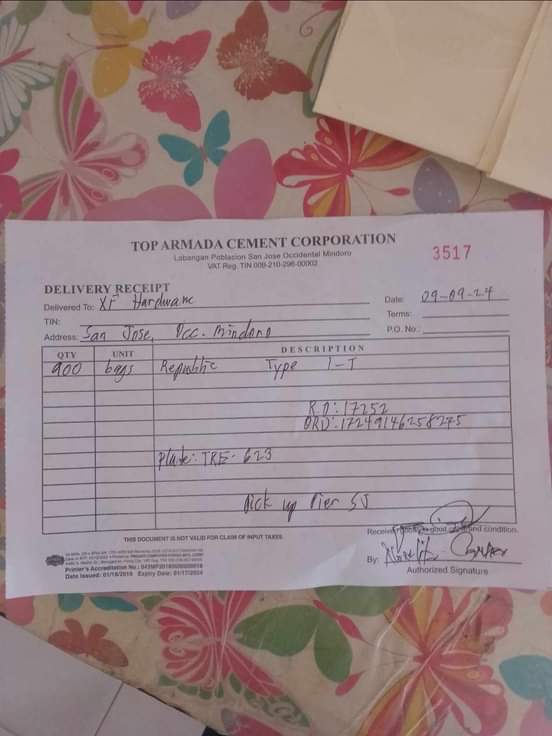 TOP ARMADA CEMENT CORPORATION
Labangan Poblacion San Jose Occidental Mindoro
VAT Reg. TIN 009-210-296-00002
3517
DELIVERY RECEIPT
Delivered To: XF Hardware
Date: 09-09-24
TIN:
Terms:
Address: San Jose, Occ. Mindoro
P.O. No.:
QTY UNIT DESCRIPTION
900 bags Republic Type 1-T
R.O: 17252
ORD: 17249146258275
Plate: TRE-623
Pick up Pier SJ
THIS DOCUMENT IS NOT VALID FOR CLAIM OF INPUT TAXES
Received good and condition.
By:
Authorized Signature
Printer's Accreditation No.:
Date Issued: 01/18/2019 Expiry Date: 01/17/2024